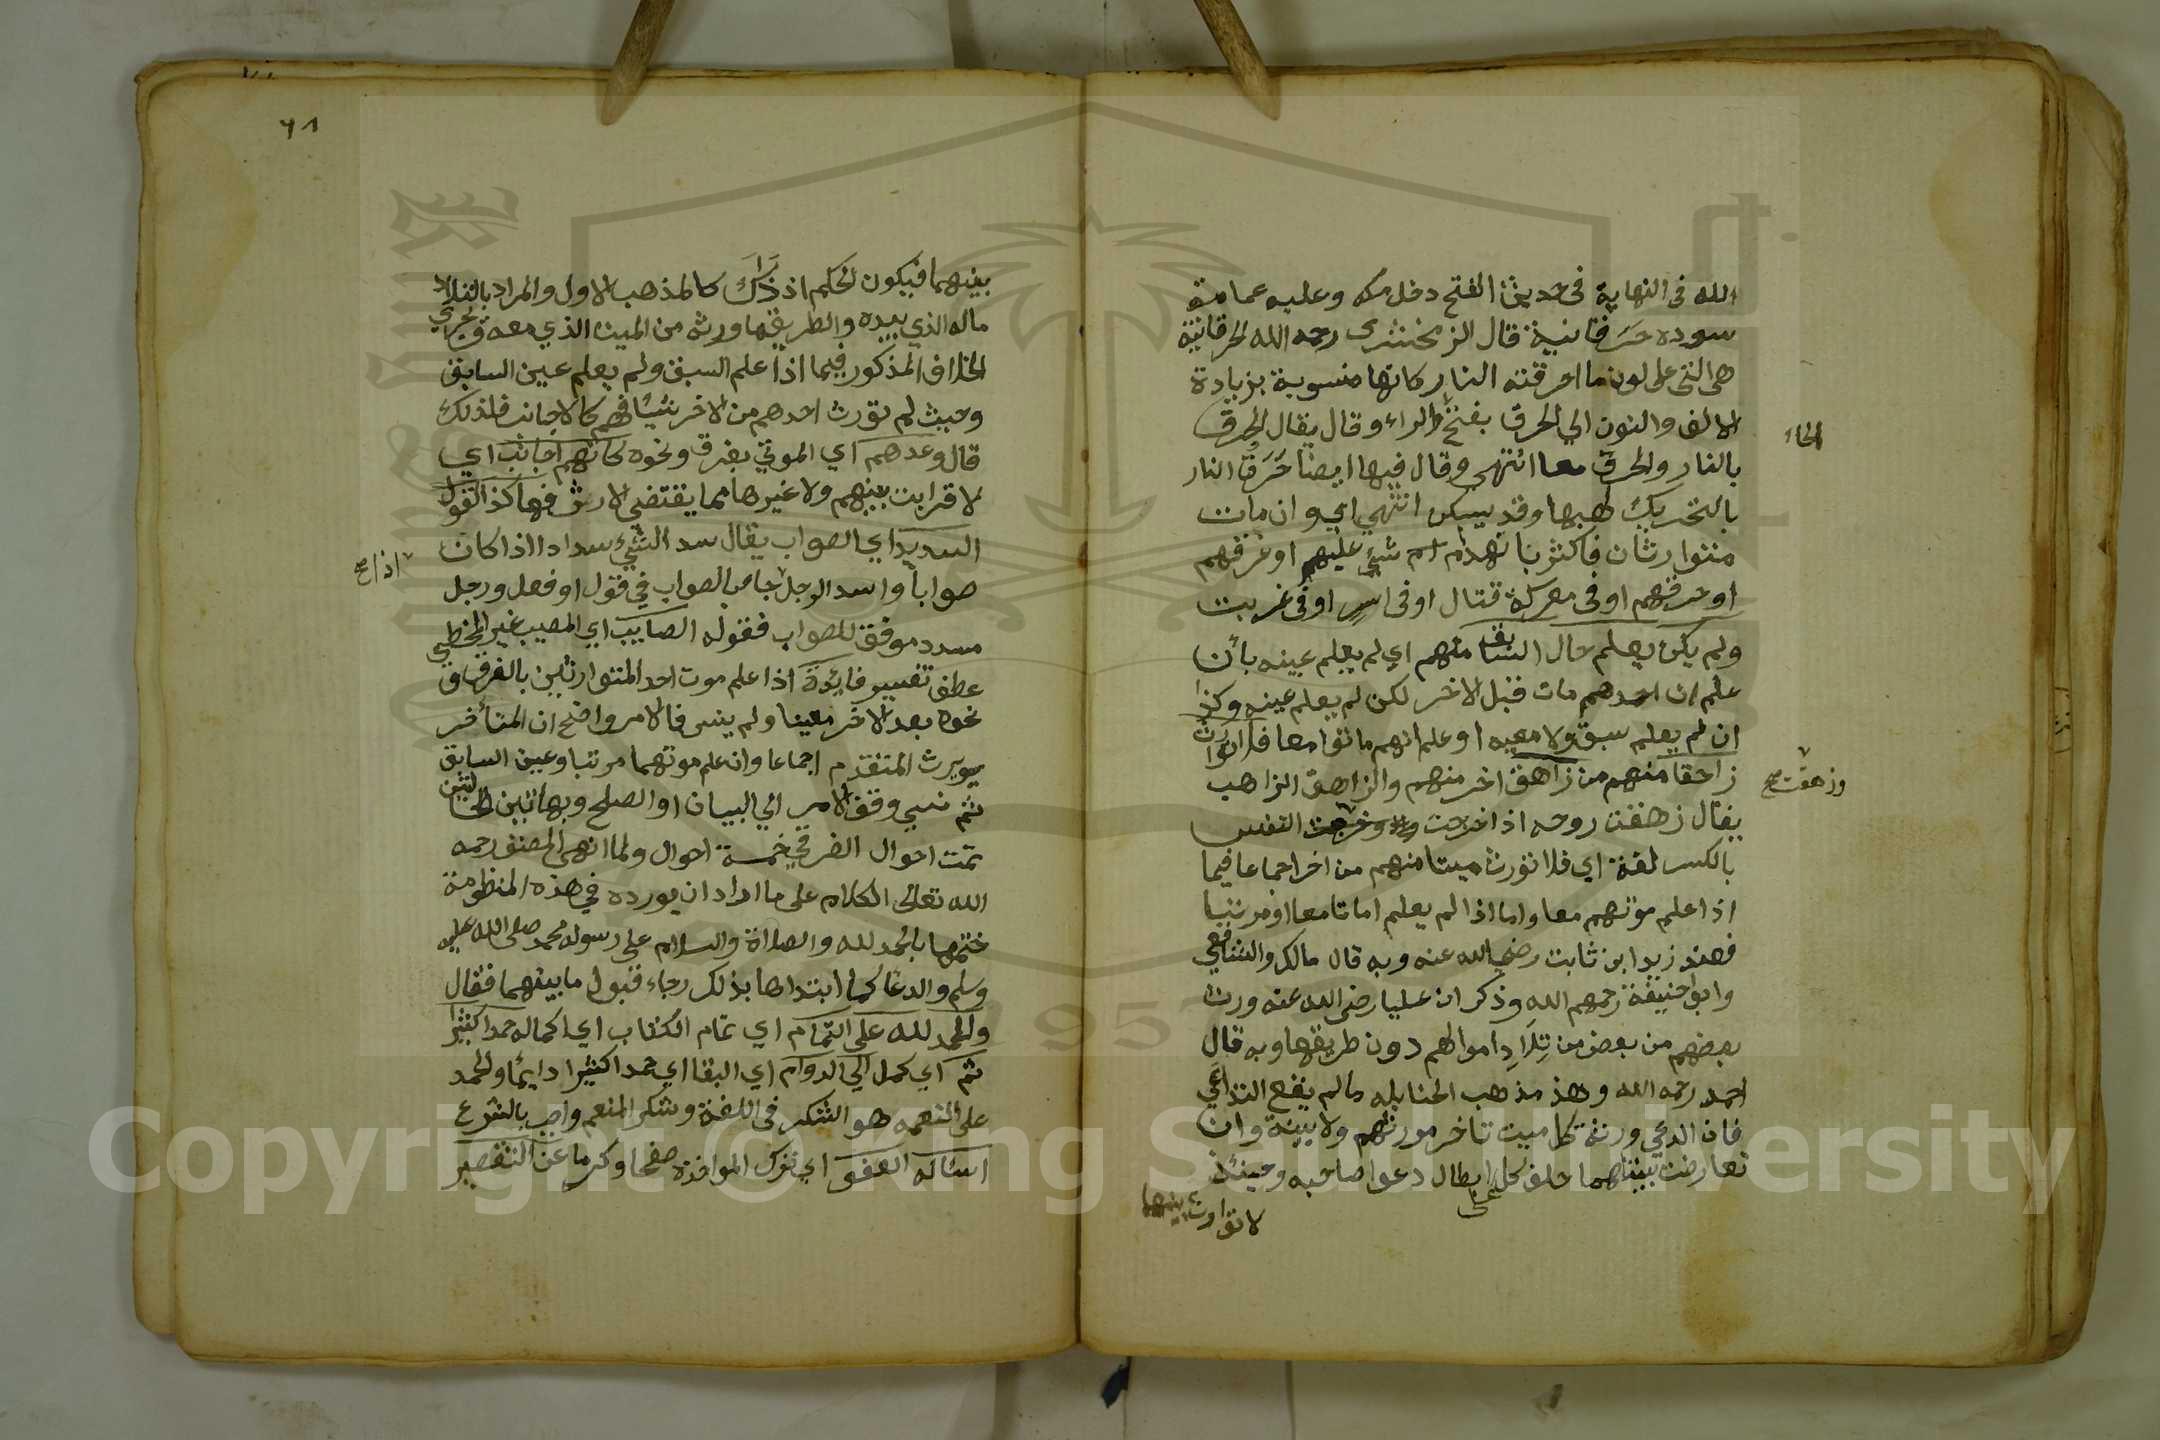 الله في النهاية في حديث الفتح دخل مكه وعليه عمامة
سوده حرقانية قال الزمخشري رحمه الله الحرقانية
هي التي على لون ما احرقته النار كانها منسوبة بزيادة
الالف والنون الي الحرق بفتح والراء وقال يقال الحرق
الحاء
بالنار والحرق معا انتهى وقال فيها ايضا حرق النار
بالتحريك لهبها وقد يسكن انتهي اي وان مات
متوارثان فاكثر بانهدام شئ عليهم او غرقهم
او حرقهم او في معركة قتال او في اسر او في غربت
ولم يكن يعلم حال السابق منهم اي لم يعلم عينه بأن
علم ان احدهم مات قبل الاخر لكن لم يعلم عينه وكذا
ان لم يعلم سبق ولا معيه او علم انهم ماتوا معا فلا توارث
زاحقا منهم من زاهق اخر منهم والزاهق الذاهب
يقال زهقت روحه اذا خرجت وخرجت النفس
وزهقت صح
بالكسر لغة اي فلا تورث ميتا منهم من اخر اجماعا فيما
اذا علم موتهم معا واما اذا لم يعلم اماتا معا او مرتبا
فعند زيد ابن ثابت رضي الله عنه وبه قال مالك والشافعي
وابو حنيفة رحمهم الله وذكر ان عليا رضى الله عنه ورث
بعضهم من بعض من تلاد اموالهم دون طريقها وبه قال
احمد رحمه الله وهذ مذهب الحنابله ما لم يقع التداعي
فان ادعي ورثة كل ميت تاخر مورثهم ولا بينة وان
تعارضت بينتاهما حلف كل على ابطال دعوا صاحبه وحينئذ
لا توارث بينهما
٦٨
بينهما فيكون الحكم اذ ذاك كالمذهب الاول والمراد بالتلاد
ماله الذي بيده والطريقها ورثه من الميت الذي معه ويجري
الخلاف المذكور فيما اذا علم السبق ولم يعلم عين السابق
وحيث لم تورث احدهم من الاخر شيئا فهم كالاجانب فلذلك
قال وعدهم اي الموتي بغرق ونحوه كانهم اجانب اي
لا قرابت بينهم ولا غيرها مما يقتضي الارث فهاكذا القول
السديد اي الصواب يقال سد الشيئ سدادا اذا كان
صوابا واسد الرجل جا من الصواب في قول او فعل ورجل
اذا صح
مسدد موفق للصواب فقوله الصايب اي المصيب غير المخطي
عطف تفسير فايدة اذا علم موت احد المتوارثين بالغرق و
نحوه بعد الاخر معينا ولم ينسى فالامر واضح ان المتأخر
يرث المتقدم اجماعا وان علم موتهما مرتبا وعين السابق
ثم نسي وقف الامر الي البيان او الصلح وبهاتين الحالتين
تمت احوال الغرقي خمسة احوال ولما انهى المصنف رحمه
الله تعالى الكلام على ما اراد ان يورده في هذه المنظومة
ختمها بالحمد لله والصلاة والسلام على رسوله محمد صلى الله عليه
وسلم والدعا كما ابتداها بذلك رجاء قبول ما بينهما فقال
والحمد لله على التمام اي تمام الكتاب اي اكماله حمدا كثيرا
ثم اي كمل الي الدوام اي البقا اي حمدا كثيرا دايما والحمد
على النعمه هو الشكر في اللغة وشكر المنعم واجب بالشرع
اسئاله العفو اي ترك المواخذة صفحا وكرما عن التقصير
Copyright © King Saud University
1957